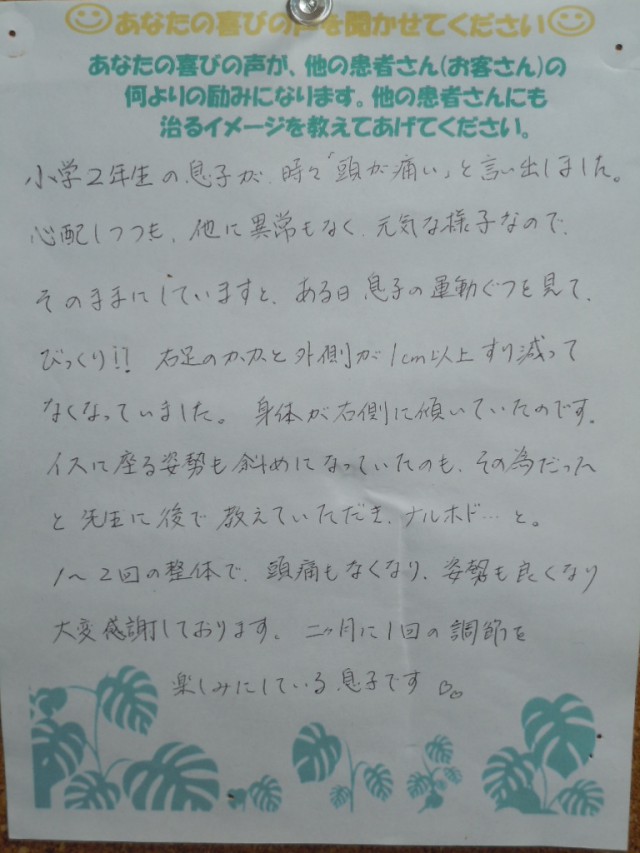 あなたの喜びの声を聞かせてください
あなたの喜びの声が、他の患者さん(お客さん)の
何よりの励みになります。他の患者さんにも
治るイメージを教えてあげてください。
小学2年生の息子が、時々「頭が痛い」と言い出しました。
心配しつつも、他に異常もなく、元気な様子なので、
そのままにしていますと、ある日息子の運動ぐつを見て、
びっくり!! 右足のかかと外側が1cm以上すり減って
なくなっていました。身体が右側に傾いていたのです。
イスに座る姿勢も斜めになっていたのも、その為だった
と先生に後で教えていただき、ナルホド…と。
1〜2回の整体で、頭痛もなくなり、姿勢も良くなり
大変感謝しております。二ヶ月に1回の調節を
楽しみにしている息子です♡